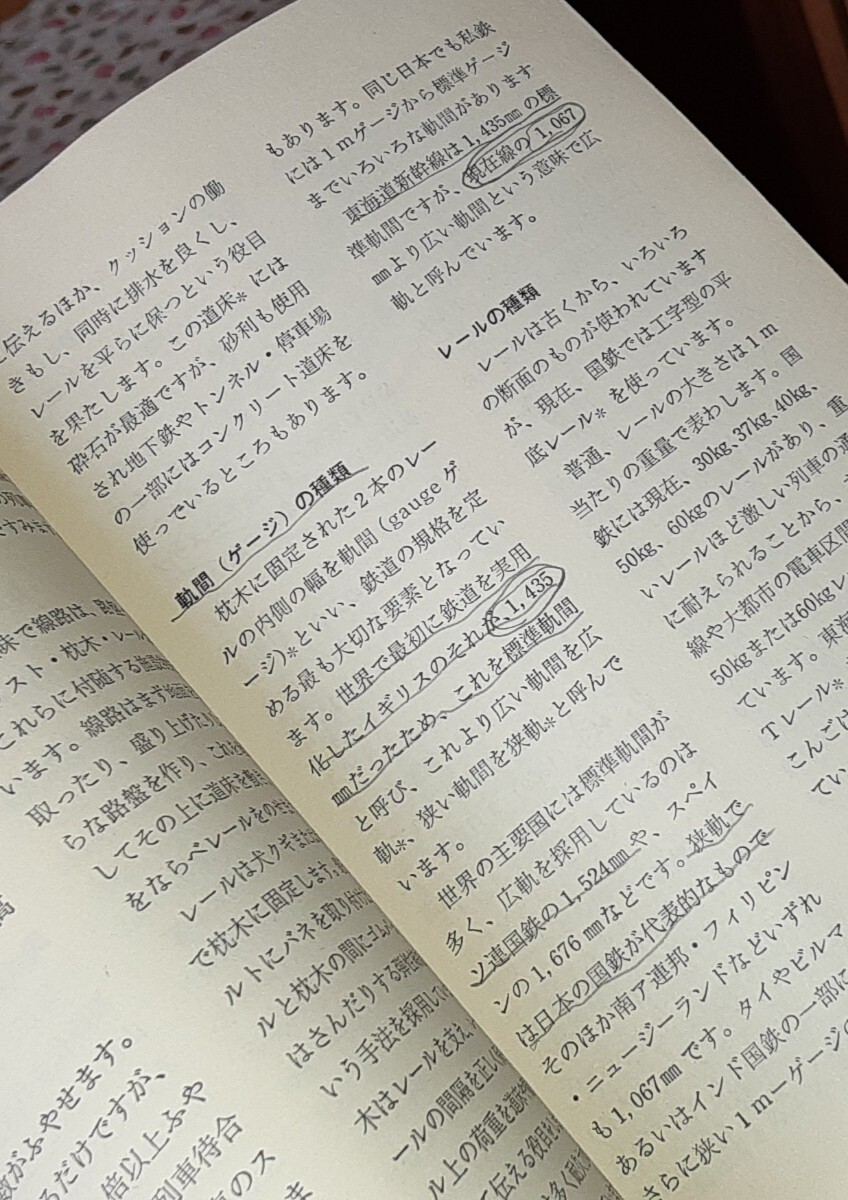 敷がふやせます。
るだけですが、
倍以上ふや
列車待合
のス
意味で線路は、
スト・枕木・レール
これらに付随する
います。線路はまず
取ったり、盛り上げたり
らな路盤を作り、これを
してその上に道床を
をならべレールを
レールは犬クギまた
で枕木に固定します。
ルトにバネを取り付け
ルと枕木の間にゴム
はさんだりする弾性
いう手法を採用してい
木はレールを支え、
ールの間隔を正しい
ル上の荷重を道床
に伝える役目を
に伝えるほか、クッションの働
きもし、同時に排水を良くし、
レールを平らに保つという役目
を果たします。この道床*には
砕石が最適ですが、砂利も使用
され地下鉄やトンネル・停車場
の一部にはコンクリート道床を
使っているところもあります。
軌間(ゲージ)の種類
枕木に固定された2本のレー
ルの内側の幅を軌間(gaugeゲ
ージ)*といい、鉄道の規格を定
める最も大切な要素となってい
ます。世界で最初に鉄道を実用
化したイギリスのそれが1,435
mmだったため、これを標準軌間
と呼び、これより広い軌間を広
軌*、狭い軌間を狭軌*と呼んで
います。
世界の主要国には標準軌間が
多く、広軌を採用しているのは
ソ連国鉄の1,524mmや、スペイ
ンの1,676mmなどです。狭軌で
は日本の国鉄が代表的なもので
そのほか南ア連邦・フィリピン
・ニュージーランドなどいずれ
も1,067mmです。タイやビルマ
あるいはインド国鉄の一部に
さらに狭い1mーゲージの
もあります。同じ日本でも私鉄
には1mゲージから標準ゲージ
までいろいろな軌間があります
東海道新幹線は1,435mmの標
準軌間ですが、現在線の1,067
mmより広い軌間という意味で広
軌と呼んでいます。
レールの種類
レールは古くから、いろいろ
の断面のものが使われています
が、現在、国鉄では工字型の平
底レール*を使っています。
普通、レールの大きさは1m
当たりの重量で表わします。国
鉄には現在、30kg、37kg、40kg、
50kg、60kgのレールがあり、重
いレールほど激しい列車の通
に耐えられることから、
線や大都市の電車区間
50kgまたは60kgレ
ています。東海
Tレール*
こんごは
てい